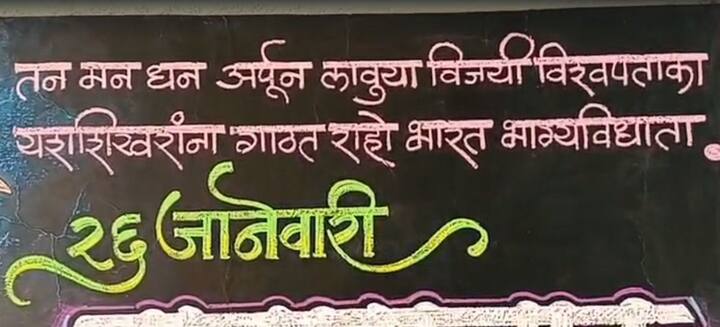 तन मन धन अर्पून लावुया विजयी विश्वपताका
यशशिखरांना गाठत राहो भारत भाग्यविधाता.
२६ जानेवारी